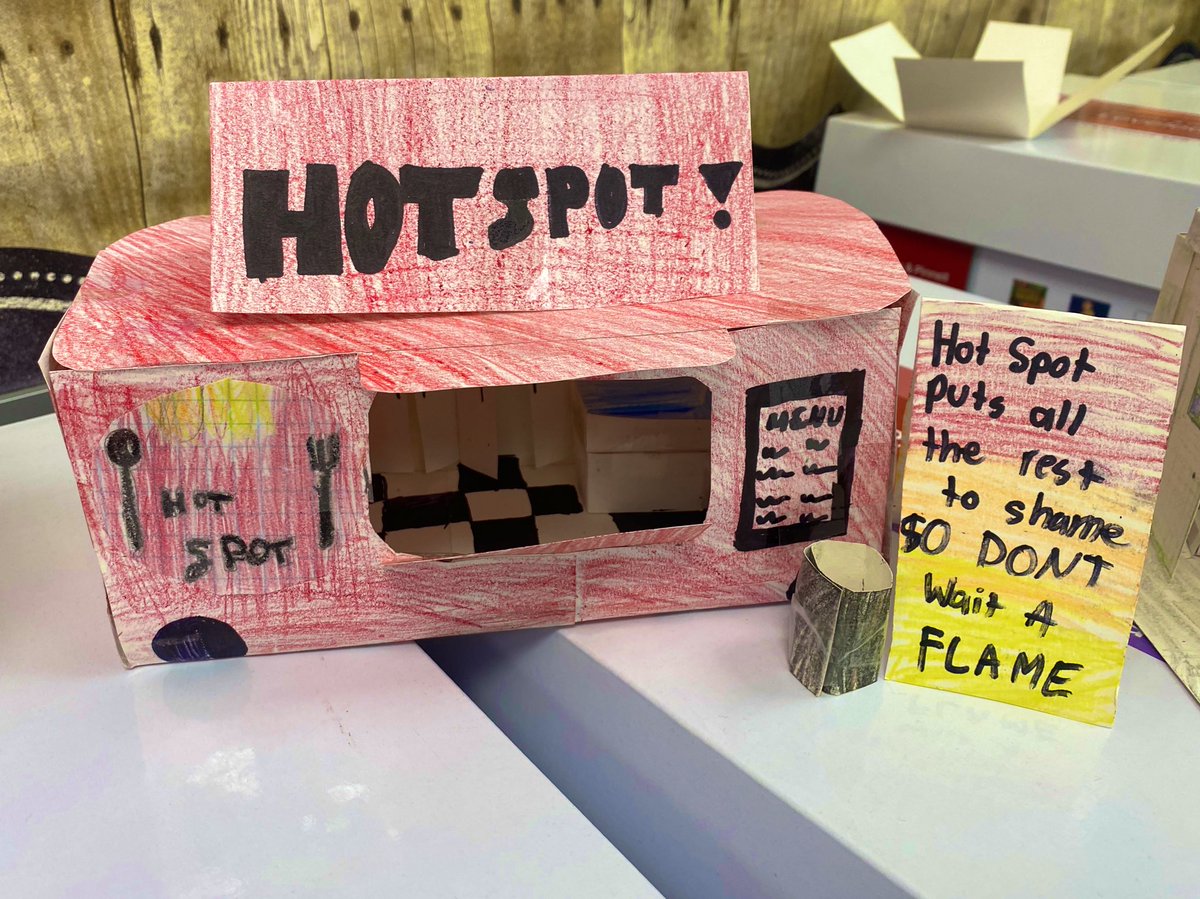 HOT SPOT!
HOT
SPOT
MENU
Hot Spot
Puts all
the rest
to shame
$O DONT
Wait A
FLAME